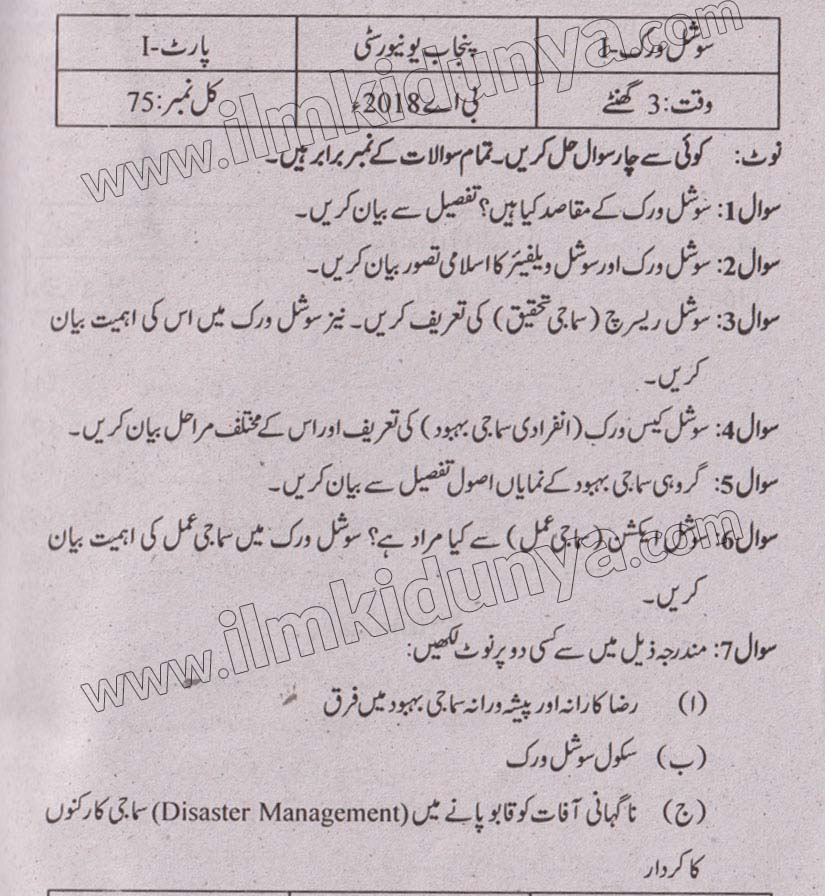 سوشل ورک-I پنجاب یونیورسٹی پارٹ-I
وقت: 3 گھنٹے بی اے 2018ء کل نمبر: 75
نوٹ: کوئی سے چار سوال حل کریں۔ تمام سوالات کے نمبر برابر ہیں۔
سوال 1: سوشل ورک کے مقاصد کیا ہیں؟ تفصیل سے بیان کریں۔
سوال 2: سوشل ورک اور سوشل ویلفیئر کا اسلامی تصور بیان کریں۔
سوال 3: سوشل ریسرچ (سماجی تحقیق) کی تعریف کریں۔ نیز سوشل ورک میں اس کی اہمیت بیان
کریں۔
سوال 4: سوشل کیس ورک (انفرادی سماجی بہبود) کی تعریف اور اس کے مختلف مراحل بیان کریں۔
سوال 5: گروہی سماجی بہبود کے نمایاں اصول تفصیل سے بیان کریں۔
سوال 6: سوشل ایکشن (سماجی عمل) سے کیا مراد ہے؟ سوشل ورک میں سماجی عمل کی اہمیت بیان
کریں۔
سوال 7: مندرجہ ذیل میں سے کسی دو پر نوٹ لکھیں:
(ا) رضا کارانہ اور پیشہ ورانہ سماجی بہبود میں فرق
(ب) سکول سوشل ورک
(ج) ناگہانی آفات کو قابو پانے میں (Disaster Management) سماجی کارکنوں
کا کردار
www.ilmkidunya.com
www.ilmkidunya.com